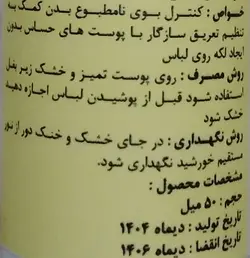 خواص : کنترل بوی نامطبوع بدن کمک به
تنظیم تعریق سازگار با پوست های حساس بدون
ایجاد لکه روی لباس
روش مصرف : روی پوست تمیز و خشک زیر بغل
استفاده شود قبل از پوشیدن لباس اجازه دهید
خشک شود
روش نگهداری : در جای خشک و خنک دور از نور
مستقیم خورشید نگهداری شود.
مشخصات محصول :
حجم : ۵۰ میل
تاریخ تولید : دیماه ۱۴۰۴
تاریخ انقضا : دیماه ۱۴۰۶